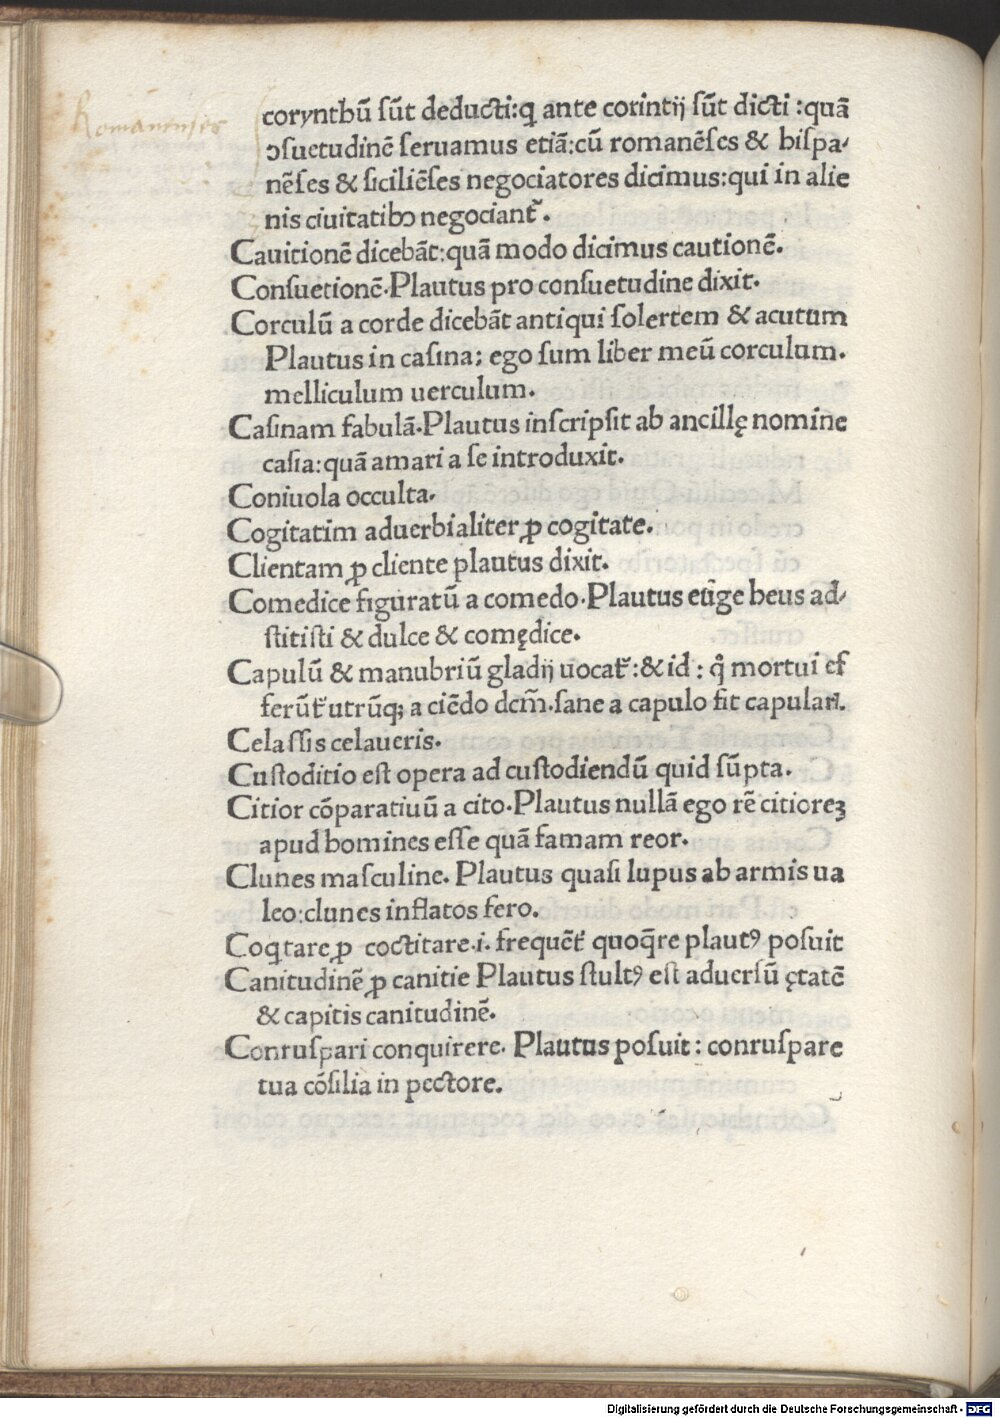 Romanenses
corynthū sūt deducti:qꝗ ante corintij sūt dicti :quā
ɔsuetudinē seruamus etiā:cū romanēses & hispa-
nēses & siciliēses negociatores dicimus:qui in alie
nis ciuitatibꝫ negociant̄.
Cauitionē dicebāt:quā modo dicimus cautionē.
Consuetionē.Plautus pro consuetudine dixit.
Corculū a corde dicebāt antiqui solertem & acutum
Plautus in casina; ego sum liber meū corculum.
melliculum uerculum.
Casinam fabulā.Plautus inscripsit ab ancillę nomine
casia:quā amari a se introduxit.
Coniuola occulta.
Cogitatim aduerbialiter ꝓ cogitate.
Clientam ꝓ cliente plautus dixit.
Comedice figuratū a comedo.Plautus euge heus ad-
stitisti & dulce & comędice.
Capulū & manubriū gladij uocat̄:& id : q̄ mortui ef
ferūt̄ utrūqꝫ a ciēdo dcm̄.sane a capulo fit capularꝭ.
Celassis celaueris.
Custoditio est opera ad custodiendū quid sūpta.
Citior cōparatiuū a cito.Plautus nullā ego rē citioreꝫ
apud homines esse quā famam reor.
Clunes masculine. Plautus quasi lupus ab armis ua
leo:clunes inflatos fero.
Coqꝗtare ꝓ coctitare.i. frequēt̄ quoq̄re plautꝰ posuit
Canitudinē ꝓ canitie Plautus stultꝰ est aduersū ętatē
& capitis canitudinē.
Conruspari conquirere. Plautus posuit : conruspare
tua cōsilia in pectore.
Digitalisierung gefördert durch die Deutsche Forschungsgemeinschaft - DFG